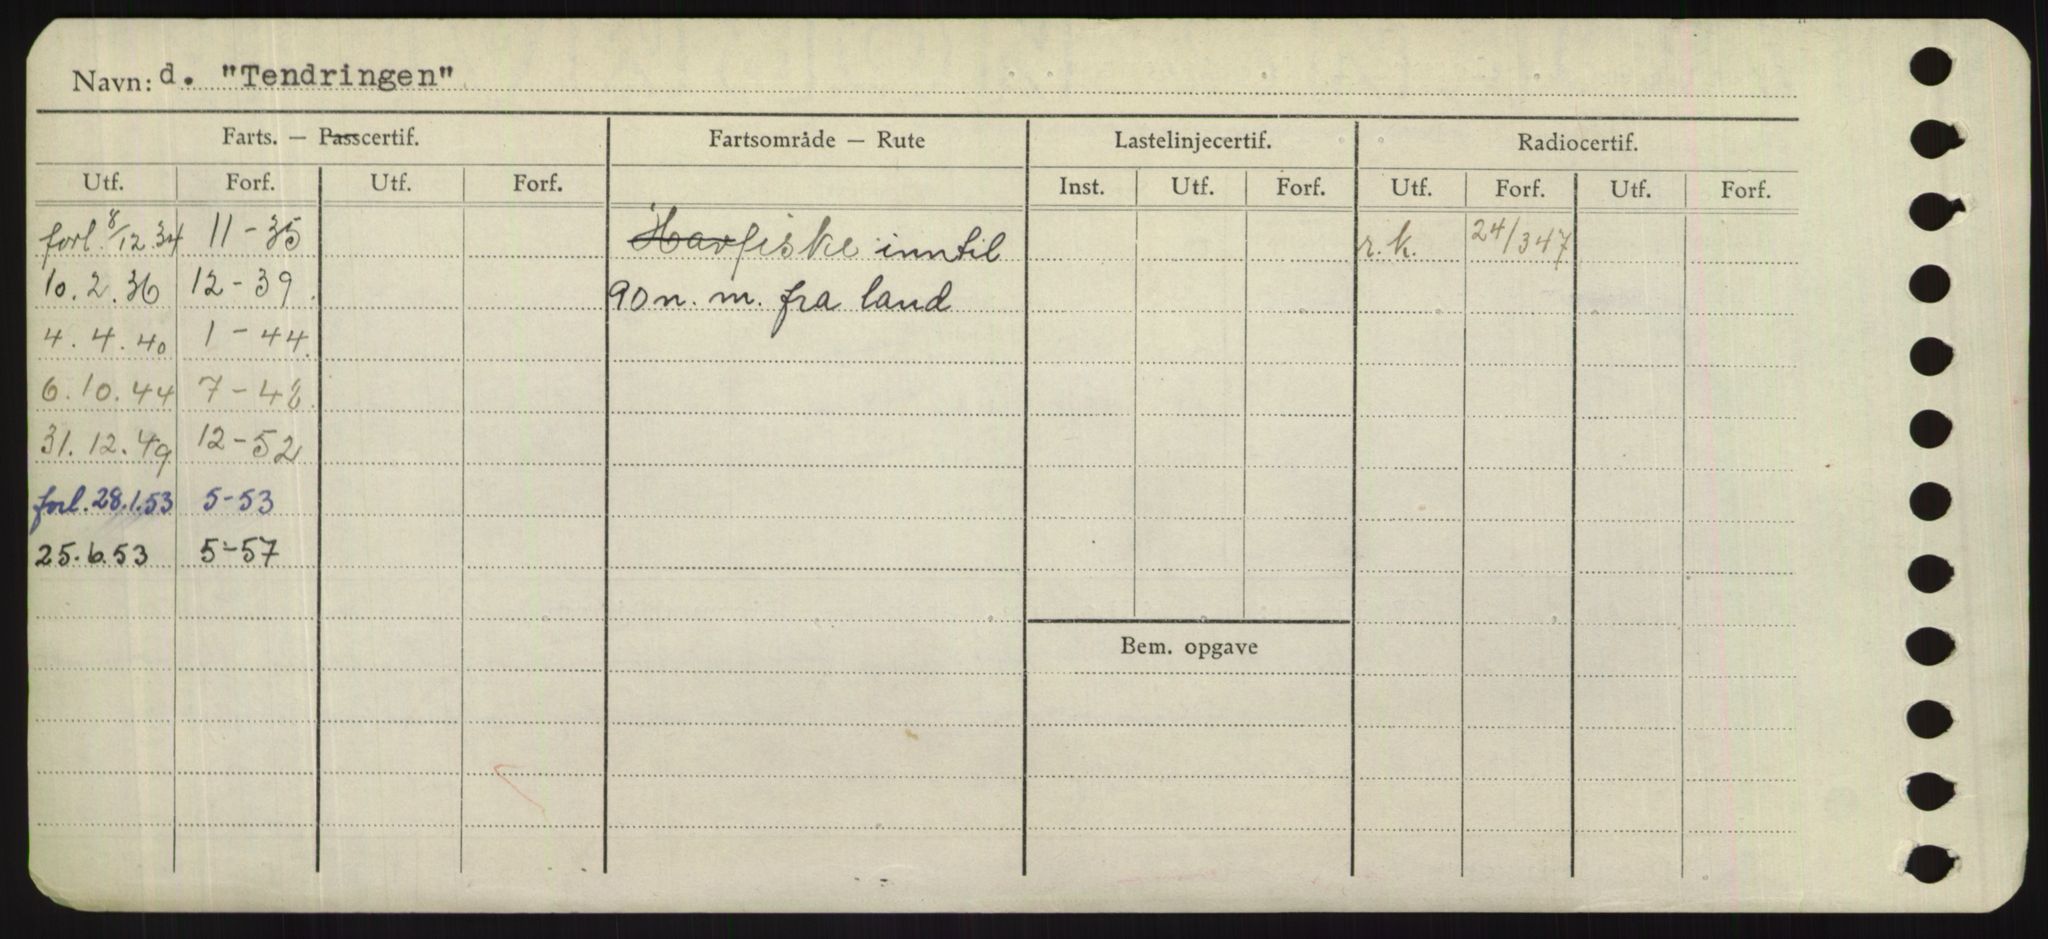 Navn: d. "Tendringen"
Farts. — Passcertif. Fartsområde — Rute Lastelinjecertif. Radiocertif.
Utf. Forf. Utf. Forf. Inst. Utf. Forf. Utf. Forf. Utf. Forf.
forl. 8/12.34 11-35 Havfiske inntil r.k. 24/347
10.2.36 12-39 90 n. m. fra land
4.4.40 1-44
6.10.44 7-48
31.12.49 12-52
forl. 28.1.53 5-53
25.6.53 5-57
Bem. opgave